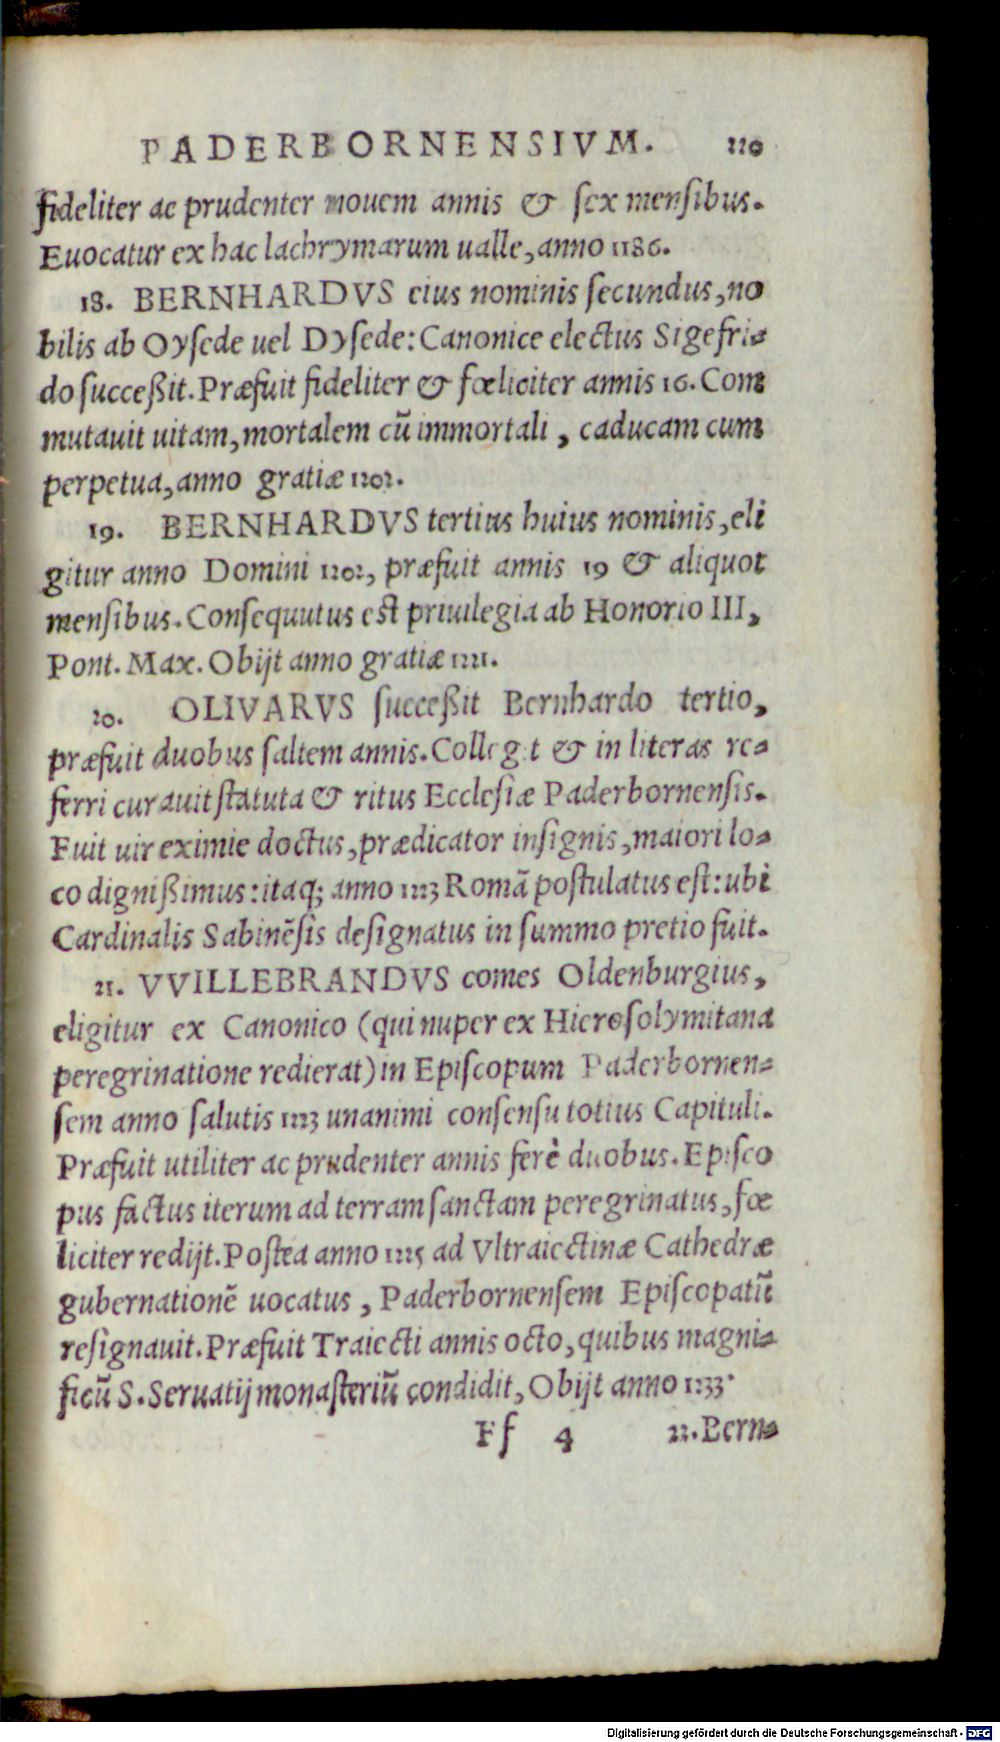 PADERBORNENSIVM. 220
fideliter ac prudenter nouem annis & sex mensibus.
Euocatur ex hac lachrymarum ualle, anno 1186.
18. BERNHARDVS eius nominis secundus, no
bilis ab Oysede uel Dysede: Canonice electus Sigefri-
do successit. Præfuit fideliter & fœliciter annis 16. Com
mutauit uitam, mortalem cũ immortali, caducam cum
perpetua, anno gratiæ 1202.
19. BERNHARDVS tertius huius nominis, eli
gitur anno Domini 1202, præfuit annis 19 & aliquot
mensibus. Consequutus est priuilegia ab Honorio III,
Pont. Max. Obijt anno gratiæ 1221.
20. OLIVARVS successit Bernhardo tertio,
præfuit duobus saltem annis. Collegit & in literas re-
ferri curauit statuta & ritus Ecclesiæ Paderbornensis.
Fuit uir eximie doctus, prædicator insignis, maiori lo-
co dignissimus: itaq; anno 1223 Romã postulatus est: ubi
Cardinalis Sabinẽsis designatus in summo pretio fuit.
21. VVILLEBRANDVS comes Oldenburgius,
eligitur ex Canonico (qui nuper ex Hierosolymitana
peregrinatione redierat) in Episcopum Paderbornen-
sem anno salutis 1223 unanimi consensu totius Capituli.
Præfuit utiliter ac prudenter annis ferè duobus. Episco
pus factus iterum ad terram sanctam peregrinatus, fœ
liciter redijt. Postea anno 1225 ad Vltraiectinæ Cathedræ
gubernationẽ uocatus, Paderbornensem Episcopatũ
resignauit. Præfuit Traiecti annis octo, quibus magni-
ficũ S. Seruatij monasteriũ condidit, Obijt anno 1233.
Ff 4 22. Bern-
Digitalisierung gefördert durch die Deutsche Forschungsgemeinschaft - DFG